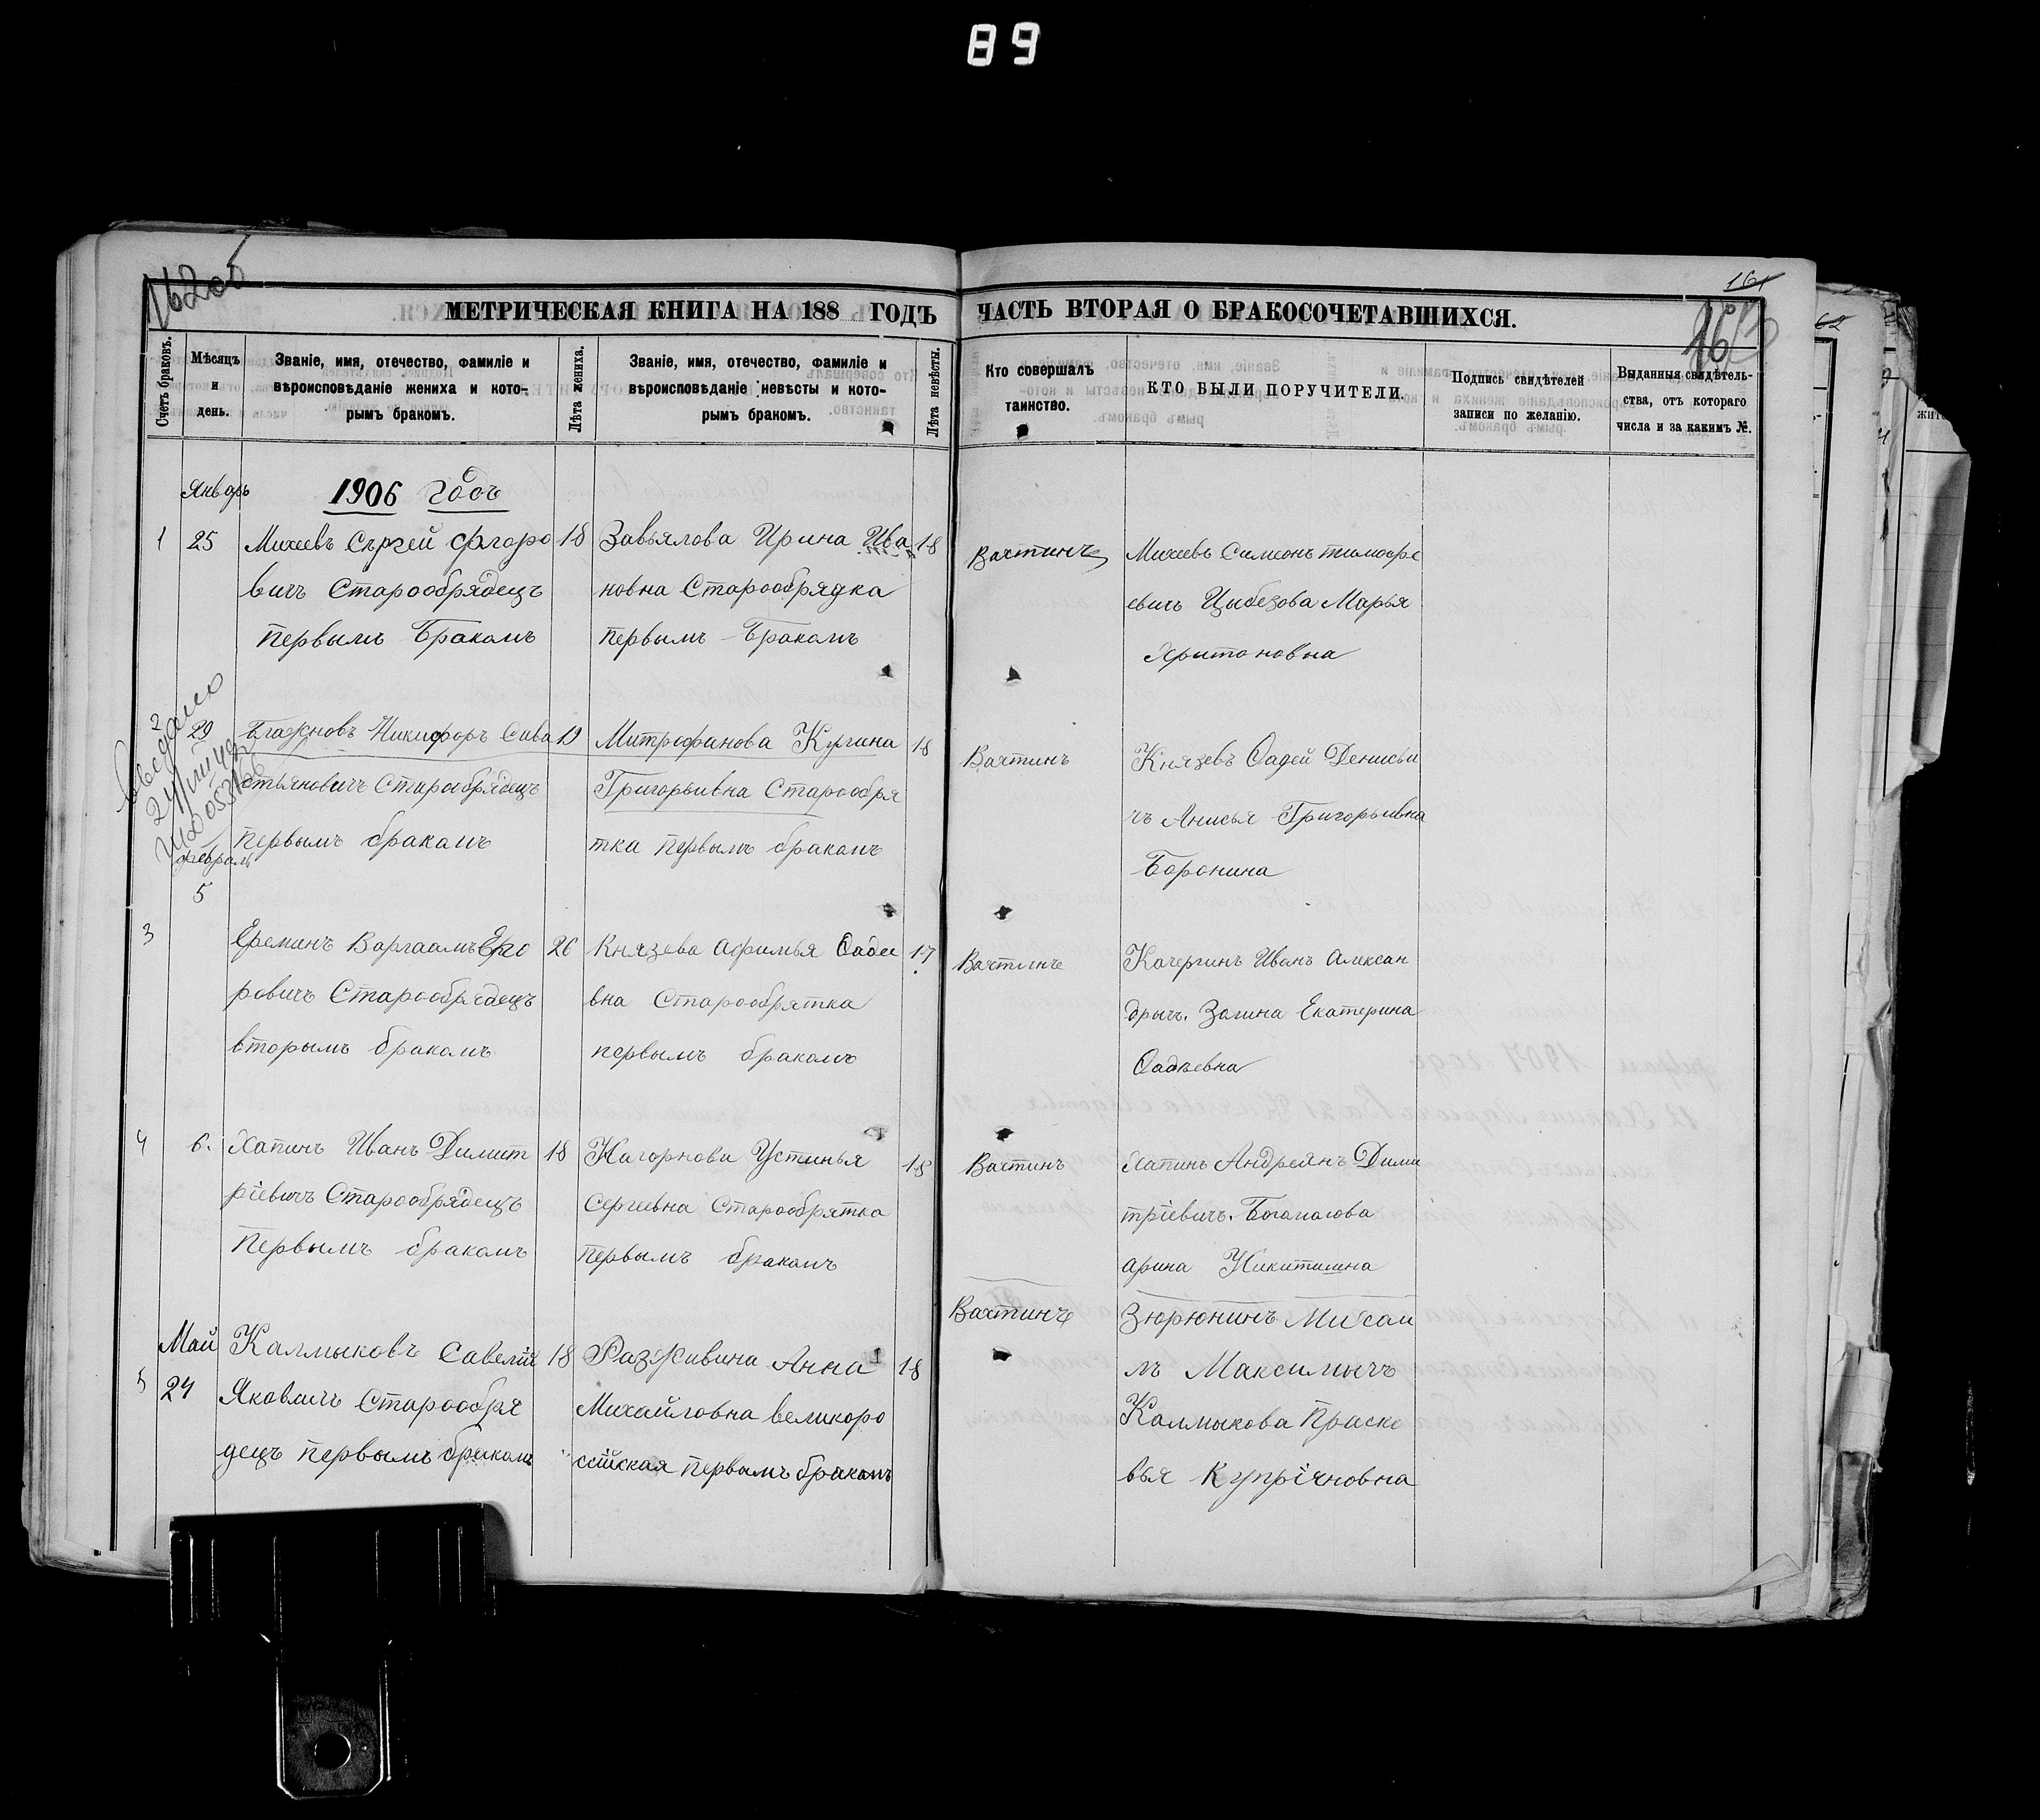 89
162об
161
163
МЕТРИЧЕСКАЯ КНИГА НА 188 ГОДЪ
ЧАСТЬ ВТОРАЯ О БРАКОСОЧЕТАВШИХСЯ.
Счетъ браковъ.
Мѣсяцъ
и
день.
Званіе, имя, отечество, фамиліе и
вѣроисповѣданіе жениха и кото-
рымъ бракомъ.
Лѣта жениха.
Званіе, имя, отечество, фамиліе и
вѣроисповѣданіе невѣсты и кото-
рымъ бракомъ.
Лѣта невѣсты.
Кто совершалъ
таинство.
КТО БЫЛИ ПОРУЧИТЕЛИ.
Подпись свидѣтелей
записи по желанію.
Выданныя свидѣтель-
ства, отъ котораго
числа и за какимъ №.
Январь
1906 годъ
1
25
Михеевъ Сергей Флоро
вичъ Старообрядецъ
первымъ Бракомъ
18
Завьялова Ирина Ива
новна Старообрядка
первымъ Бракомъ
18
Вахтинъ
Михеевъ Симеонъ тимофе
евичъ Цыбезова Марья
Харитоновна
2
29
Блажновъ Никифоръ Сива
стьяновичъ Старообрядецъ
первымъ бракомъ
19
Митрофанова
Григорьивна Старообря
тка первымъ бракомъ
18
Вахтинъ
Князевъ Фадей Денисьи
чъ Анисья Григорьивна
Боронина
февраль
5
3
Ереминъ Варлаамъ Его
ровичъ Старообрядецъ
вторымъ бракомъ
26
Князева Афимья Фаде
вна Старообрятка
первымъ бракомъ
17
Вахтинъ
Кочергинъ Иванъ Алексан
дрычъ. Зотина Екатерина
Фадѣевна
4
6.
Хапинъ Иванъ Димит
ріевичъ Старообрядецъ
Первымъ бракомъ
18
Нагорнова Устинья
Сергеевна Старообрятка
первымъ бракомъ
18
Вахтинъ
Хапинъ Андреянъ Дими
тріевичъ.
арина Никитишна
Май
5
24
Калмыковъ Савелій
Яковличъ Старообря
децъ первымъ бракомъ
18
Разживина Анна
Михайловна великоро
ссійская первымъ бракомъ
18
Вахтинъ
Зюрюнинъ Михаи
лъ Максимычъ
Калмыкова Праско
вья Купріяновна